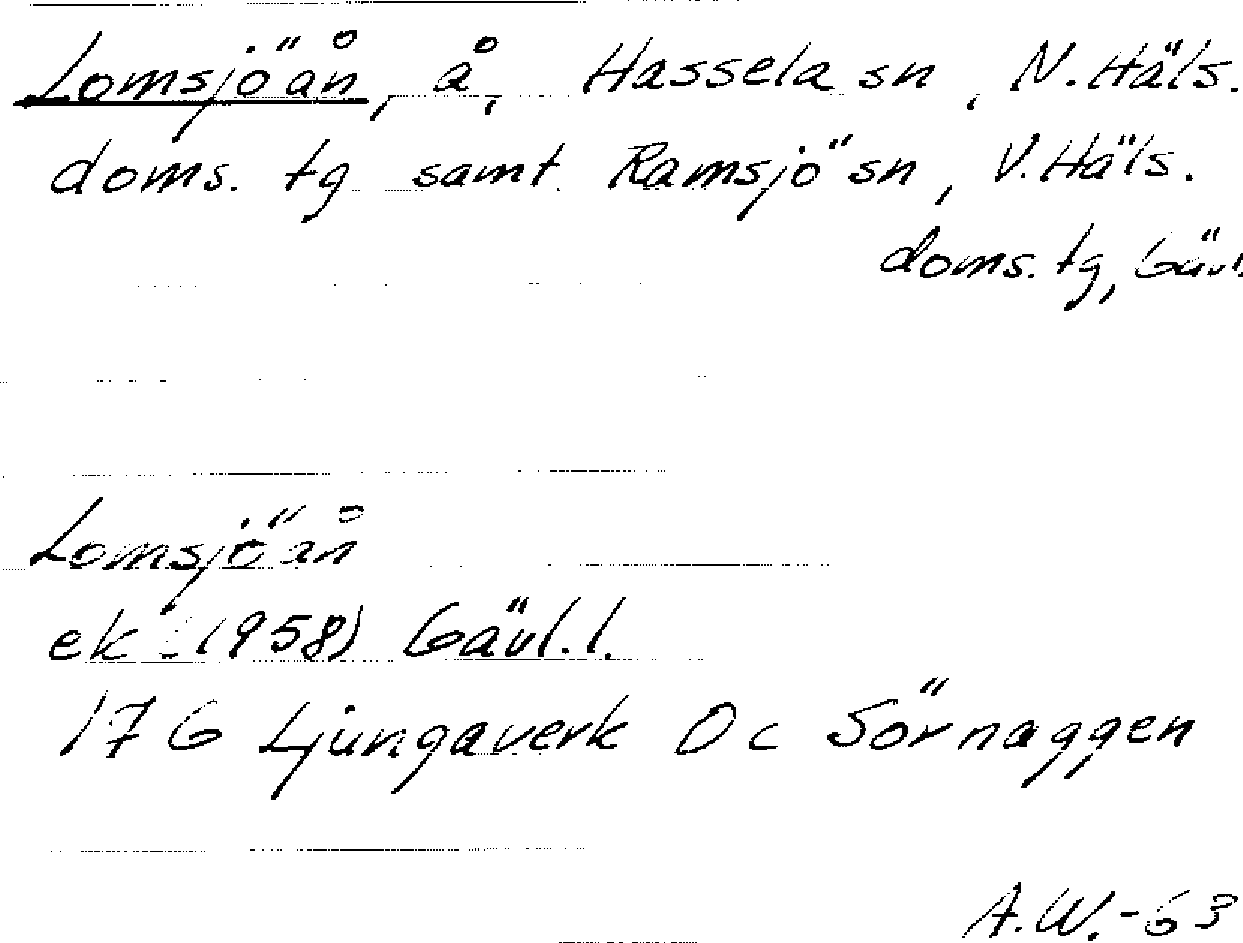 Lomsjöån, å, Hassela sn, N.Häls.
doms. tg samt Ramsjö sn, V.Häls.
doms. tg, Gävl.
Lomsjöån
ek (1958) Gävl.l.
17G Ljungaverk 0c Sörnaggen
A.W.-63